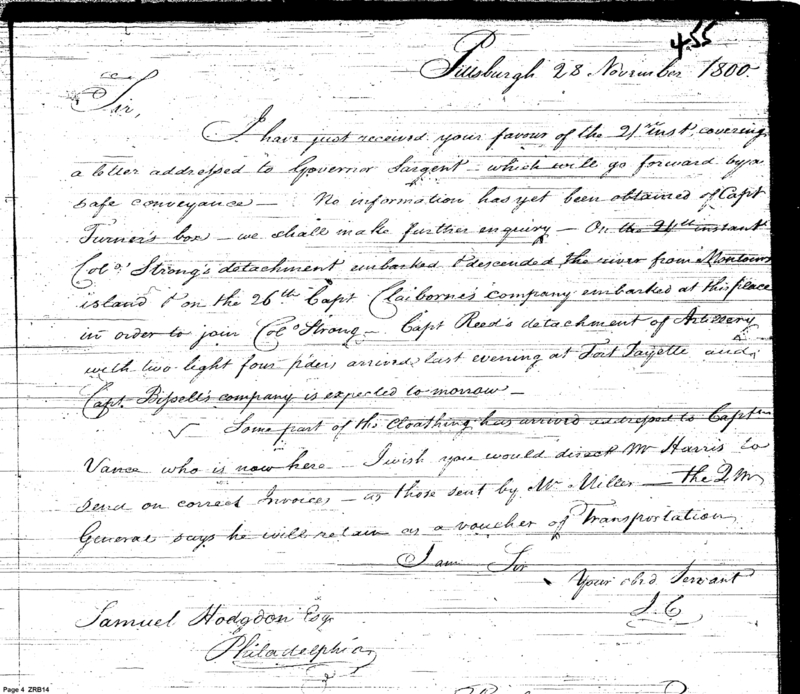 455
Pittsburgh 28 November 1800.
Sir,
I have just received your favour of the 21st inst, covering
a letter addressed to Governor Sargent - which will go forward by a
safe conveyance - No information has yet been obtained of Capt
Turner's box - we shall make further enquiry - On the 24th instant
Colo. Strong's detachment embarked & descended the river from
island & on the 26th Capt Claiborne's company embarked at this place
in order to join Colo Strong - Capt Reed's detachment of Artillery
with two light four p'ders arrived last evening at Fort Fayette and
Capt. Bissell's company is expected to-morrow -
Some part of the cloathing has arrived addressed to Capt
Vance who is now here - I wish you would direct Mr Harris to
send on correct Invoices - as those sent by Mr Miller - the Q M
General says he will retain as a voucher of Transportation
I am Sir
Your obed Servant
J. C
Samuel Hodgdon Esqr
Philadelphia
Page 4 ZRB14